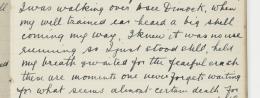 I was walking over base Dimock, when
my well trained ear heard a big shell
coming my way, I knew it was no use
running so I just stood still, held
my breath & waited for the fearful crash
there are moments one never forgets waiting
for what seems almost certain death for